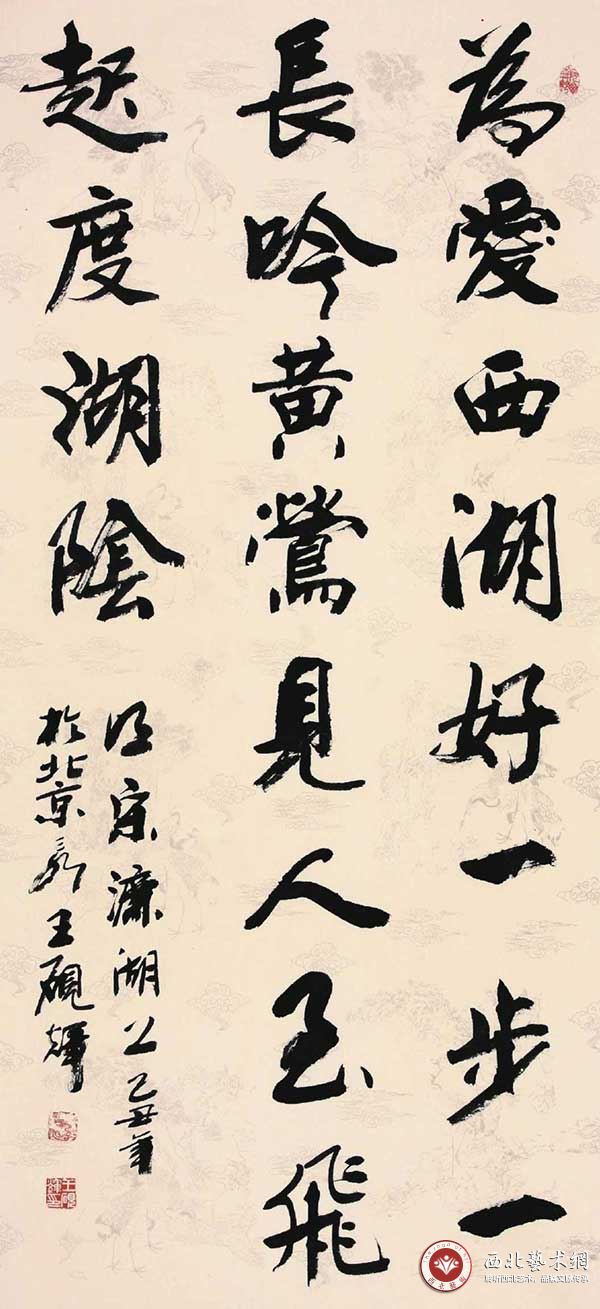 為愛西湖好一步一
長吟黄鶯見人至飛
起度湖陰
明宋濂湖上己丑年
於北京王硯輝
西北藝術網